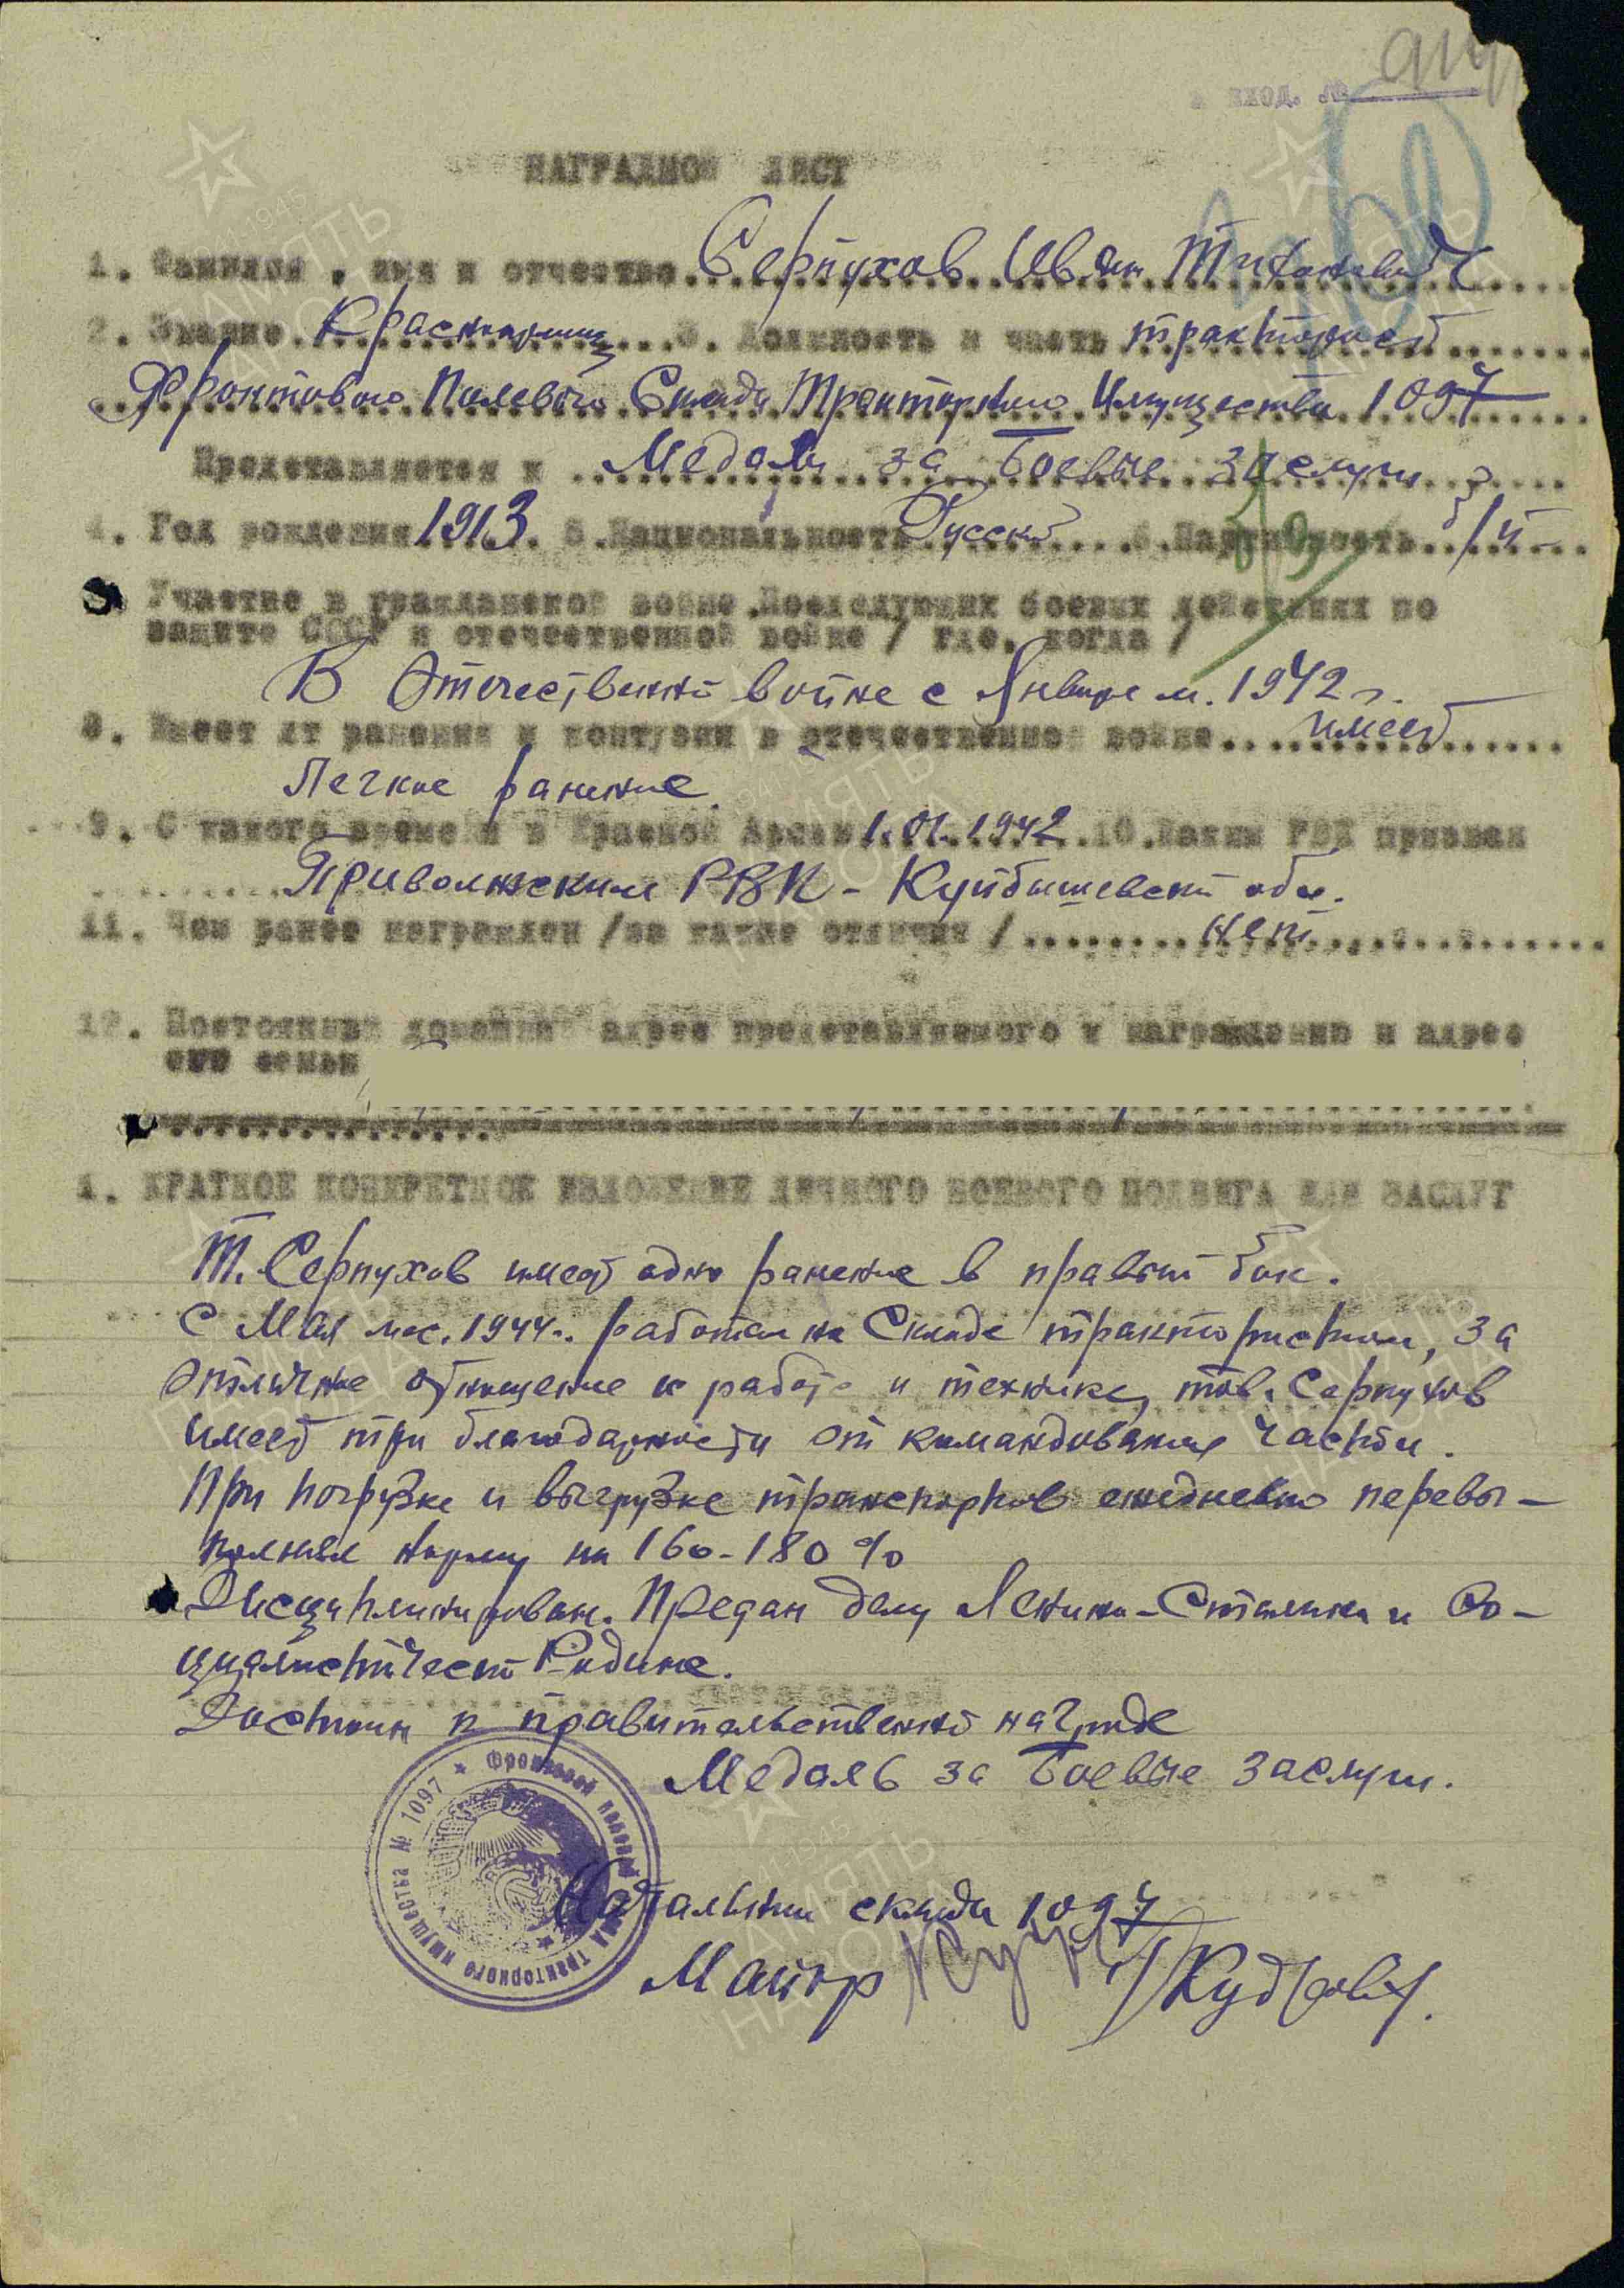 вход. №
НАГРАДНОЙ ЛИСТ
1. Фамилия, имя и отчество Серпухов Иван Тиханович
2. Звание Красноармеец 3. Должность и часть тракторист
Фронтового Полевого Склада Тракторного Имущества 1097
Представляется к Медали за Боевые заслуги
4. Год рождения 1913 5. Национальность Русский 6. Партийность б/п
Участие в гражданской войне. Последующих боевых действиях по
защите СССР и отечественной войне / где, когда /
В Отечественной войне с Января м. 1942 г.
8. Имеет ли ранения и контузии в отечественной войне имеет
Легкое ранение
9. С какого времени в Красной Армии 1.01.1942 10. Каким РВК призван
Приволжским РВК - Куйбышевской обл.
11. Чем ранее награжден /за какие отличия / нет
12. Постоянный домашний адрес представляемого к награждению и адрес
его семьи
1. КРАТКОЕ КОНКРЕТНОЕ ИЗЛОЖЕНИЕ ЛИЧНОГО БОЕВОГО ПОДВИГА ИЛИ ЗАСЛУГ
Т. Серпухов имеет одно ранение в правый бок.
С Мая мес. 1944г. работая на Складе трактористом, за
отличное отношение к работе и технике, тов. Серпухов
имеет три благодарности от командования части.
При погрузке и выгрузке транспортов ежедневно перевы-
полнял норму на 160-180 %
Дисциплинирован. Предан делу Ленина-Сталина и Со-
циалистической Родине.
Достоин к правительственной награде
Медаль за Боевые заслуги.
Фронтовой полевой склад тракторного имущества № 1097
Начальник склада 1097
Майор /Кудрович/.
ПАМЯТЬ НАРОДА